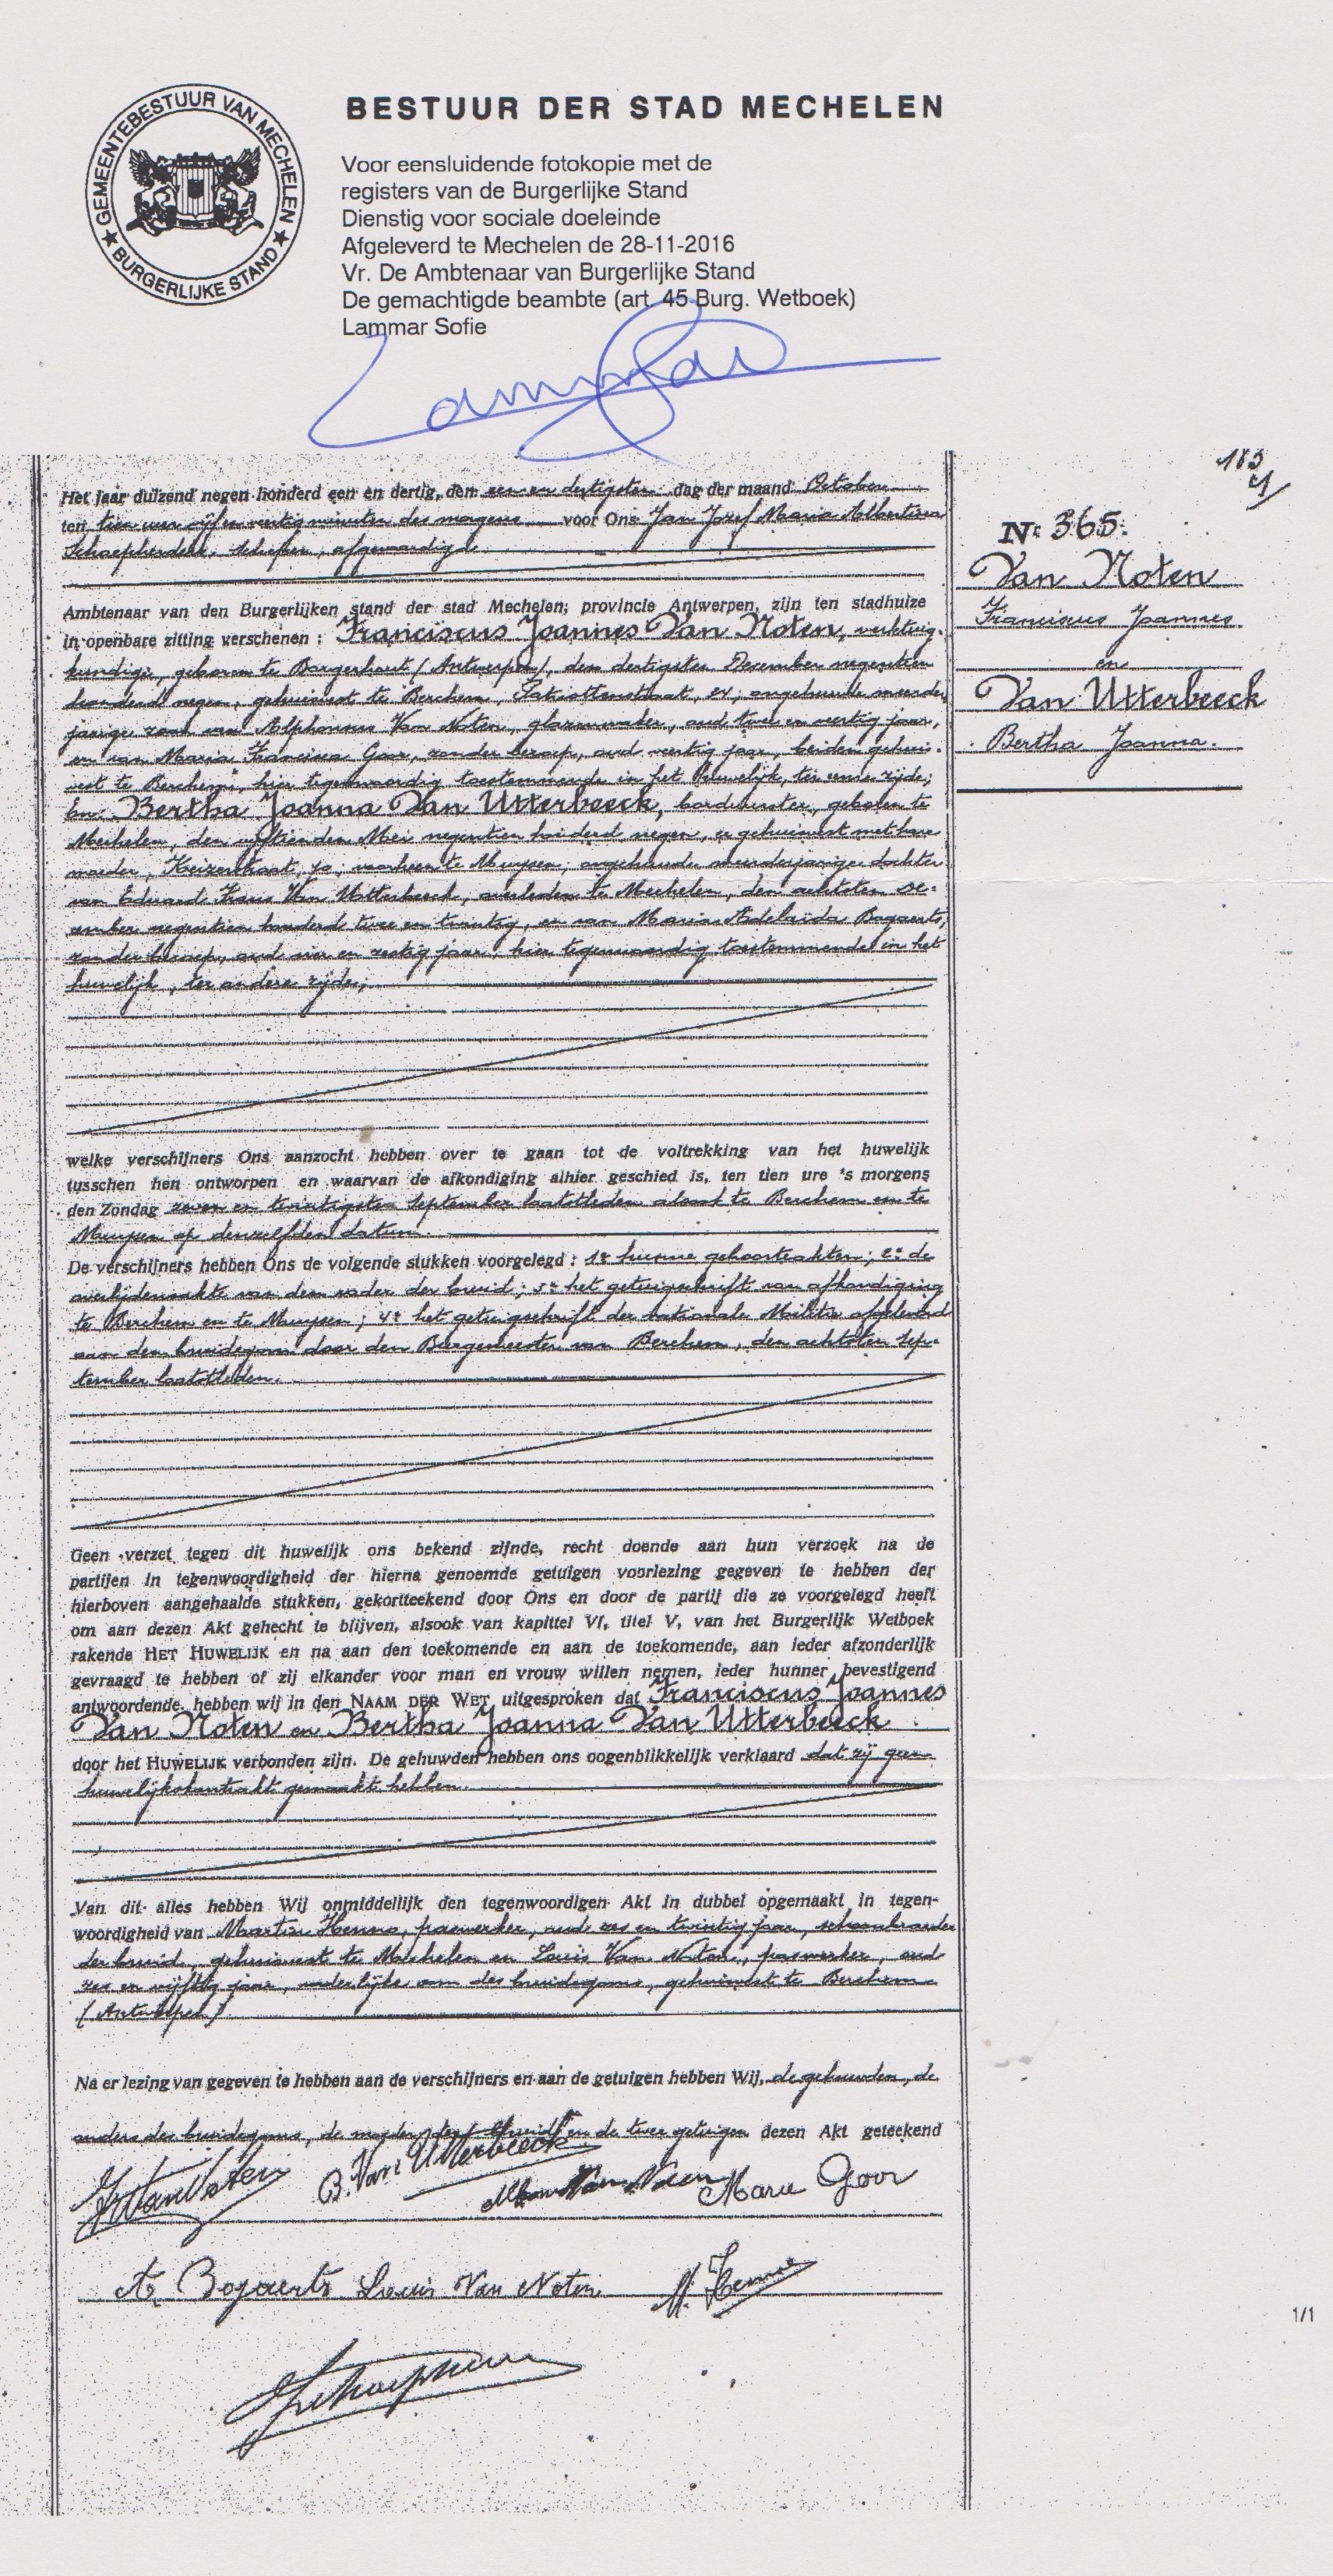 GEMEENTEBESTUUR VAN MECHELEN
BURGERLIJKE STAND
BESTUUR DER STAD MECHELEN
Voor eensluidende fotokopie met de
registers van de Burgerlijke Stand
Dienstig voor sociale doeleinde
Afgeleverd te Mechelen de 28-11-2016
Vr. De Ambtenaar van Burgerlijke Stand
De gemachtigde beambte (art. 45 Burg. Wetboek)
Lammar Sofie
183
Het jaar duizend negen honderd een en dertig, den een en dertigsten dag der maand October
ten tien uur vijf en veertig minuten des morgens voor Ons Jan Jozef Maria Albertina
schepen, afgevaardigd
Nr 365.
Van Noten
Franciscus Joannes
en
Van Utterbeeck
Bertha Joanna.
Ambtenaar van den Burgerlijken stand der stad Mechelen, provincie Antwerpen, zijn ten stadhuize
in openbare zitting verschenen : Franciscus Joannes Van Noten, werktuig-
kundige, geboren te Borgerhout (Antwerpen), den dertigsten December negentien
honderd negen, gehuisvest te Berchem, 24, ongehuwde meerder
jarige zoon van Alphonsus Van Noten, glazenmaker, oud twee en veertig jaar,
en van Maria Francisca Goor, zonder beroep, oud veertig jaar, beiden gehuis-
vest te Berchem, hier tegenwoordig toestemmende in het huwelijk, ter eene zijde;
En Bertha Joanna Van Utterbeeck, bordduurster, geboren te
Mechelen, den vijftienden Mei negentien honderd negen, er gehuisvest met hare
moeder, Keizerstraat, 70, voorheen te Muysen, ongehuwde meerderjarige dochter
van Eduard Frans Van Utterbeeck, overleden te Mechelen, den achtsten
negentien honderd twee en twintig, en van Maria Adelaida Bogaerts,
zonder beroep, oud vier en zestig jaar, hier tegenwoordig toestemmende in het
huwelijk, ter andere zijde,
welke verschijners Ons aanzocht hebben over te gaan tot de voltrekking van het huwelijk
tusschen hen ontworpen en waarvan de afkondiging alhier geschied is, ten tien ure 's morgens
den Zondag zeven en twintigsten September laatstleden alsook te Berchem en te
Muysen op denzelfden datum.
De verschijners hebben Ons de volgende stukken voorgelegd : 1º hunne geboorteakten; 2º de
overlijdensakte van den vader der bruid; 3º het getuigschrift van afkondiging
te Berchem en te Muysen; 4º het getuigschrift der nationale Militie afgeleverd
aan den bruidegom door den Burgemeester van Berchem, den achtsten Sep-
tember laatstleden.
Geen verzet tegen dit huwelijk ons bekend zijnde, recht doende aan hun verzoek na de
partijen in tegenwoordigheid der hierna genoemde getuigen voorlezing gegeven te hebben der
hierboven aangehaalde stukken, gekortteekend door Ons en door de partij die ze voorgelegd heeft
om aan dezen Akt gehecht te blijven, alsook van kapittel VI, titel V, van het Burgerlijk Wetboek
rakende HET HUWELIJK en na aan den toekomende en aan de toekomende, aan ieder afzonderlijk
gevraagd te hebben of zij elkander voor man en vrouw willen nemen, ieder hunner bevestigend
antwoordende, hebben wij in den NAAM DER WET uitgesproken dat Franciscus Joannes
Van Noten en Bertha Joanna Van Utterbeeck
door het HUWELIJK verbonden zijn. De gehuwden hebben ons oogenblikkelijk verklaard dat zij geen
huwelijkskontrakt gemaakt hebben.
Van dit alles hebben Wij onmiddellijk den tegenwoordigen Akt in dubbel opgemaakt in tegen-
woordigheid van Martin Henno, paswerker, oud zes en twintig jaar, schoonbroeder
der bruid, gehuisvest te Mechelen en Louis Van Noten, paswerker, oud
zes en vijftig jaar, vaderlijke oom des bruidegoms, gehuisvest te Berchem
(Antwerpen)
Na er lezing van gegeven te hebben aan de verschijners en aan de getuigen hebben Wij, de gehuwden, de
ouders des bruidegoms, de moeder der bruid en de twee getuigen dezen Akt geteekend
B. Van Utterbeeck
Marie Goor
Bogaerts Louis Van Noten
1/1